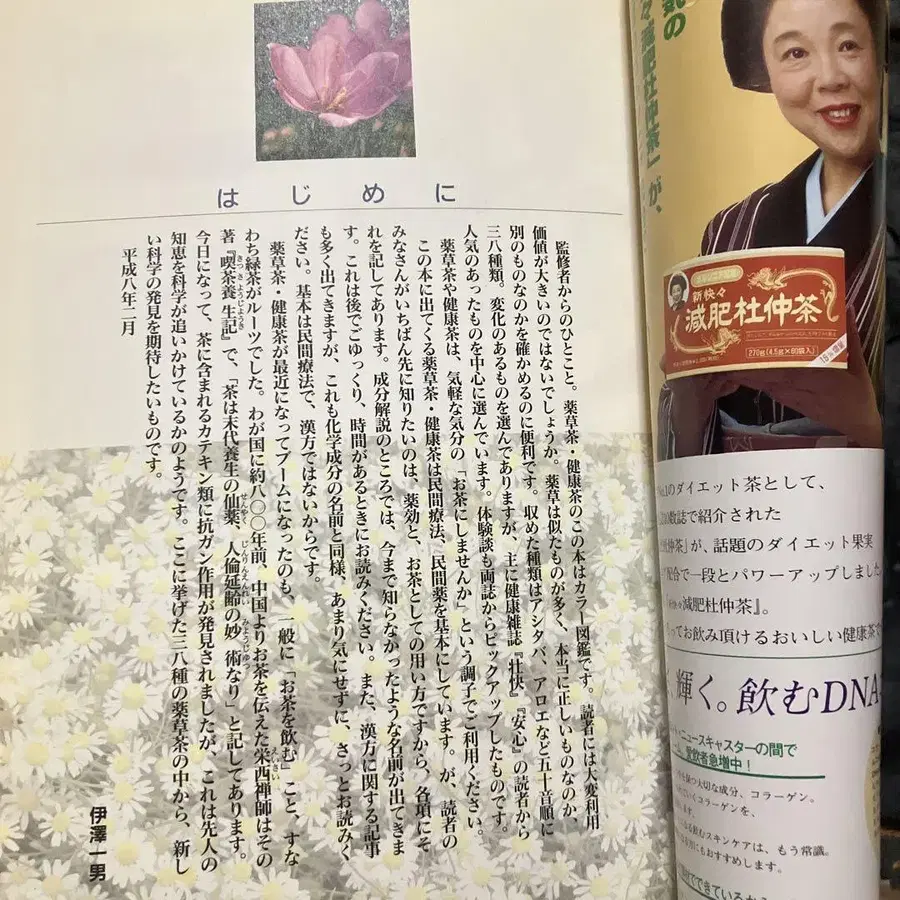 はじめに
監修者からのひとこと。薬草茶・健康茶のこの本はカラー図鑑です。読者には大変利用
価値が大きいのではないでしょうか。薬草は似たものが多く、本当に正しいものなのか、
別のものなのかを確かめるのに便利です。収めた種類はアシタバ、アロエなど五十音順に
三八種類。変化のあるものを選んでありますが、主に健康雑誌『壮快』『安心』の読者から
人気のあったものを中心に選んでいます。体験談も両誌からピックアップしたものです。
薬草茶や健康茶は、気軽な気分の「お茶にしませんか」という調子でご利用ください。
この本に出てくる薬草茶・健康茶は民間療法、民間薬を基本にしています。が、読者の
みなさんがいちばん先に知りたいのは、薬効と、お茶としての用い方ですから、各項にそ
れを記してあります。成分解説のところでは、今まで知らなかったような名前が出てきま
す。これは後でごゆっくり、時間があるときにお読みください。また、漢方に関する記事
も多く出てきますが、これも化学成分の名前と同様、あまり気にせずに、さっとお読みく
ださい。基本は民間療法で、漢方ではないからです。
薬草茶・健康茶が最近になってブームになったのも、一般に「お茶を飲む」こと、すな
わち緑茶がルーツでした。わが国に約八〇〇年前、中国よりお茶を伝えた栄西禅師はその
著『喫茶養生記』で、「茶は末代養生の仙薬、人倫延齢の妙術なり」と記してあります。
今日になって、茶に含まれるカテキン類に抗ガン作用が発見されましたが、これは先人の
知恵を科学が追いかけているかのようです。ここに挙げた三八種の薬草茶の中から、新し
い科学の発見を期待したいものです。
平成八年二月
伊澤一男
気の
減肥杜仲茶」が、
新快々
減肥杜仲茶
270g(4.5g×60袋入)
のダイエット茶として、
数誌で紹介された
仲茶』が、話題のダイエット果実
配合で一段とパワーアップしました
減肥杜仲茶』。
ってお飲み頂けるおいしい健康茶で
輝く。飲むDNA
ニュースキャスターの間で
愛飲者急増中！
つ大切な成分、コラーゲン。
コラーゲンを、
飲むスキンケアは、もう常識。
にもおすすめします。
でできているから